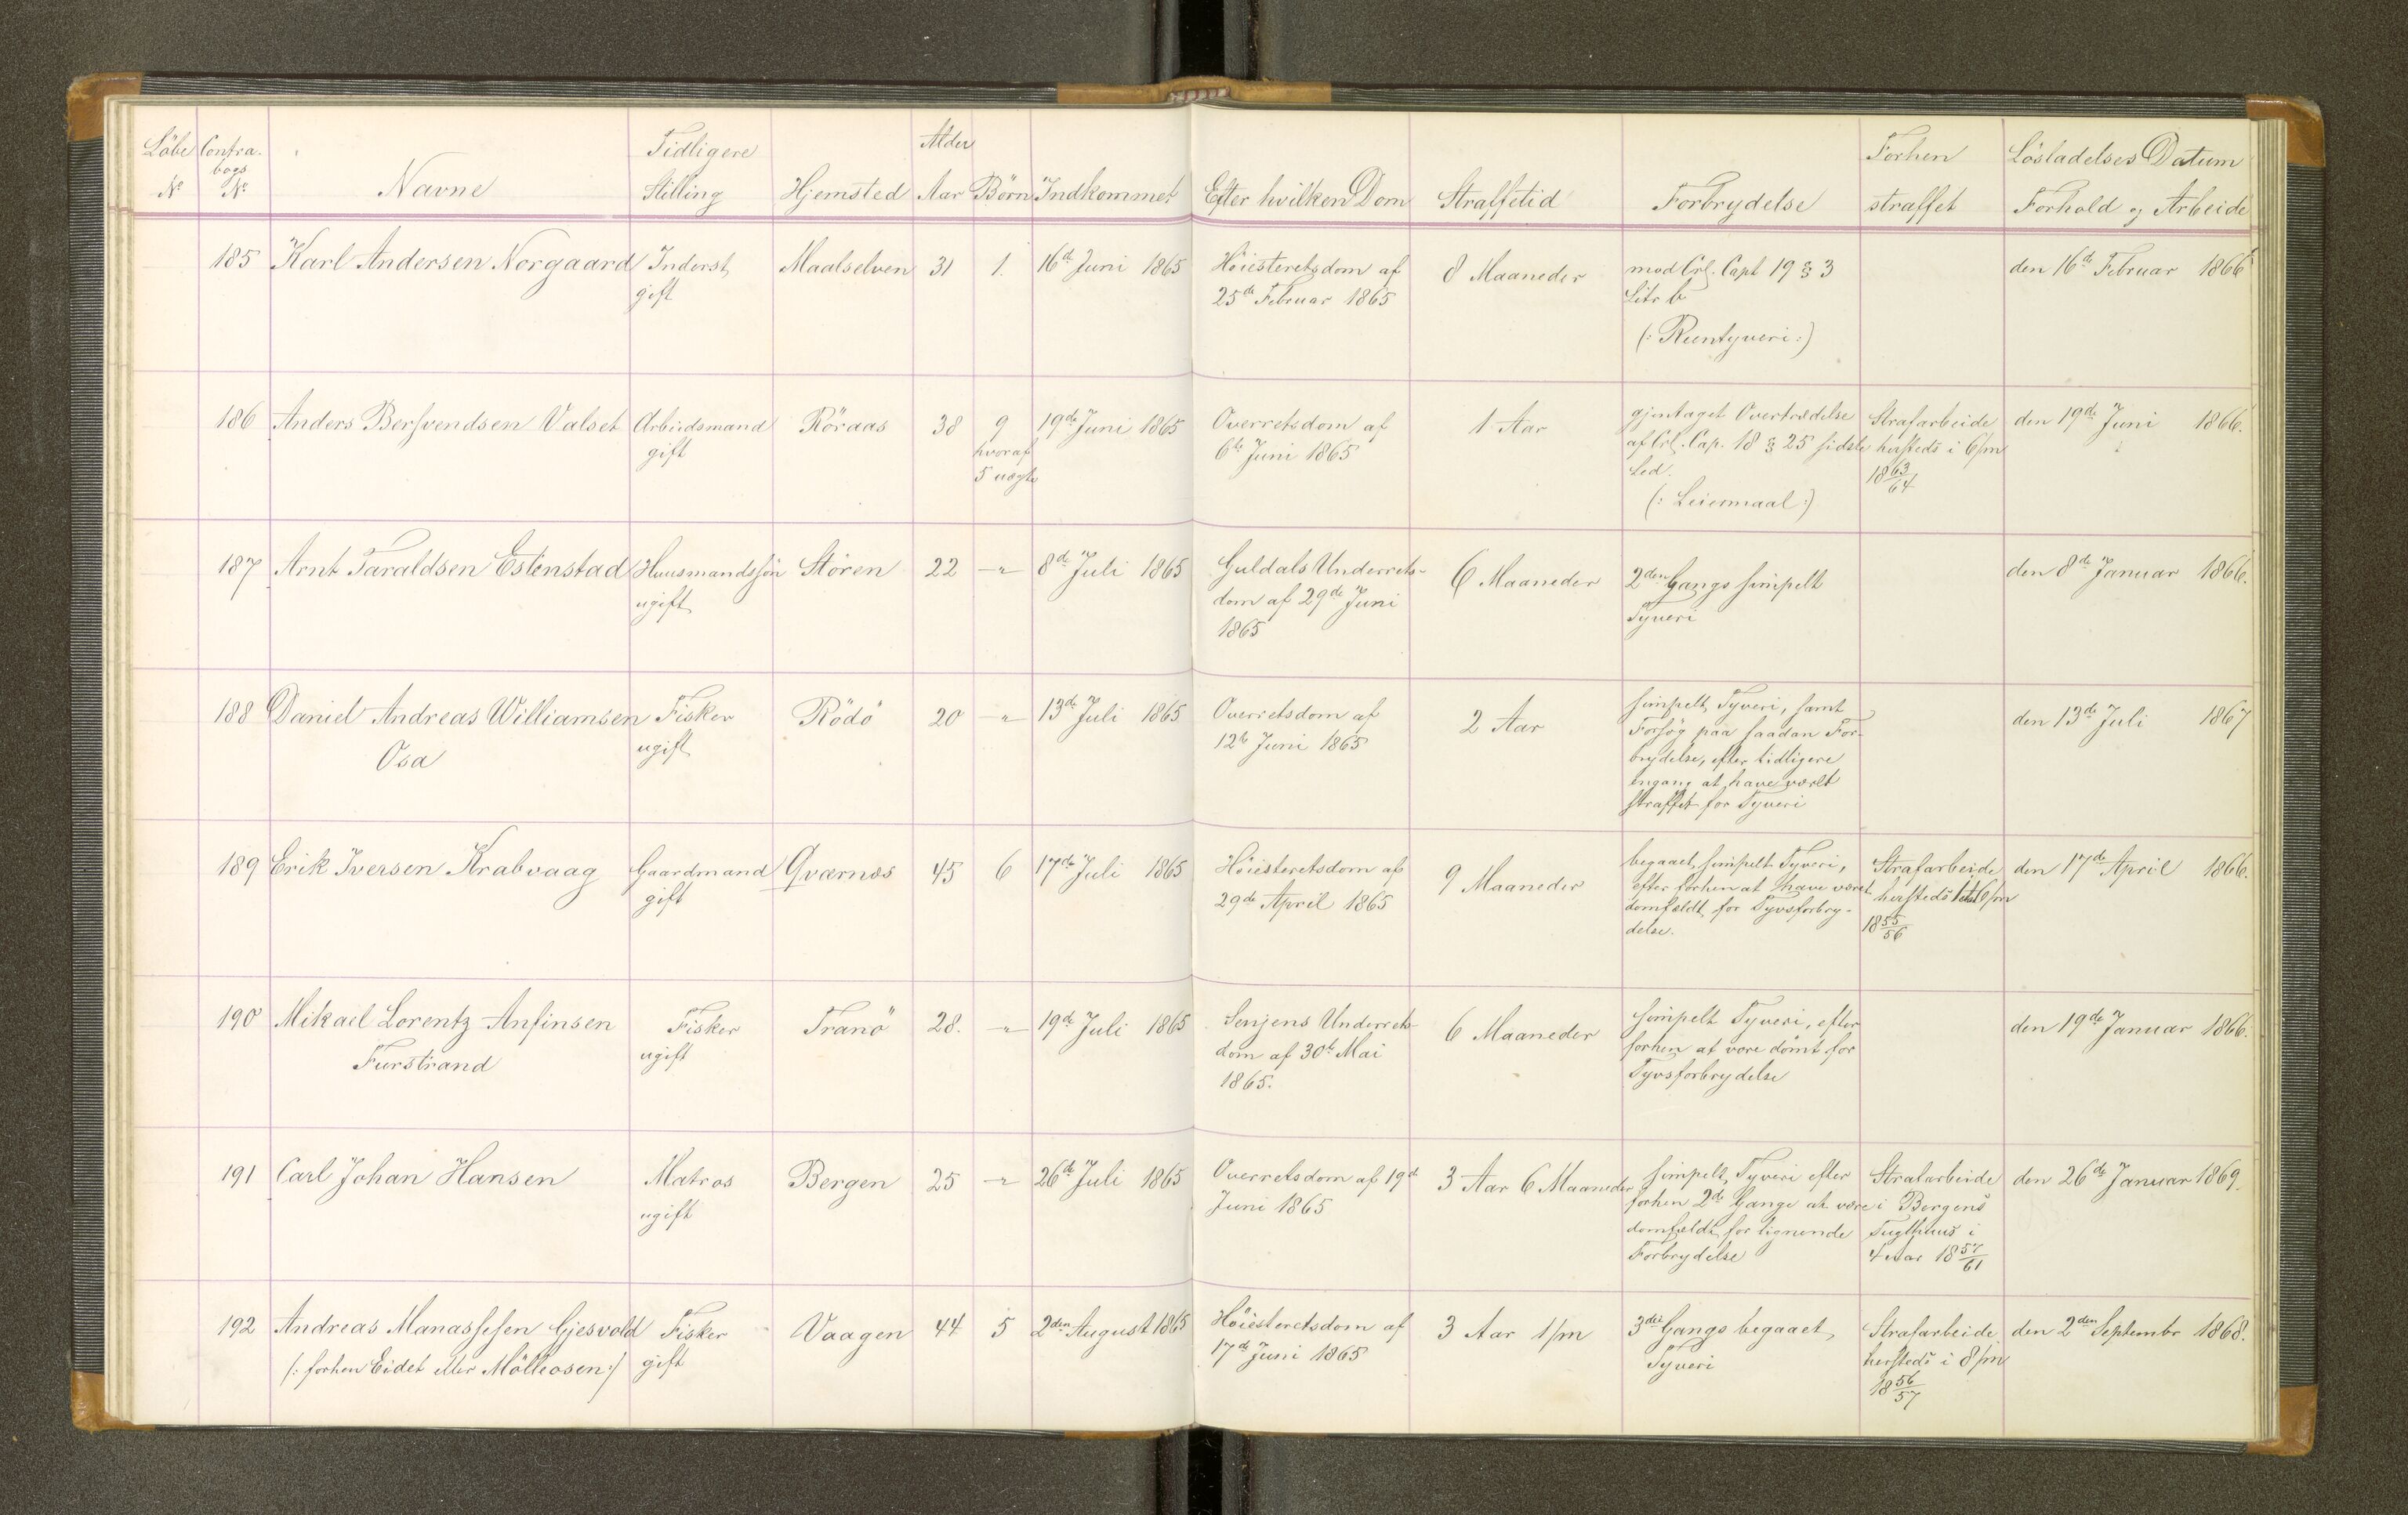 Löbe Contra. Tidligere Alder Forhen Löslatelses Datum
bogs
No No Navne Stilling Hjemsted Aar Börn Indkommet Efter hvilken Dom Straffetid Forbrydelse straffet Forhold og Arbeide
185 Karl Andersen Norgaard Inderst Maalselven 31 1. 16de Juni 1865 Höiesteretsdom af 8 Maaneder mod Crl. Capt 19 § 3 den 16de Februar 1866
gift 25de Februar 1865 Litr b
(: Reentyveri :)
186 Anders Bersvendsen Valset Arbeidsmand Röraas 38 9 19de Juni 1865 Overretsdom af 1 Aar gjentaget Overtrædelse Strafarbeide den 19de Juni 1866.
gift hvoraf 6te Juni 1865 af Crl. Cap. 18 § 25 sidste hersteds i 6/m
5 uægte Led. 18 63/64
(: Leiermaal :)
187 Arnt Taraldsen Estenstad Huusmandssön Stören 22 -"- 8de Juli 1865 Guldals Underrets- 6 Maaneder 2den Gangs simpelt den 8de Januar 1866.
ugift dom af 29de Juni Tyveri
1865
188 Daniel Andreas Williamsen Fisker Rödö 20 -"- 13de Juli 1865 Overretsdom af 2 Aar simpelt Tyveri, samt den 13de Juli 1867
Osa ugift 12te Juni 1865 Forsög paa saadan For-
brydelse, efter tidligere
engang at have været
straffet for Tyveri
189 Erik Iversen Krabvaag Gaardmand Qværnæs 45 6 17de Juli 1865 Höiesteretsdom af 9 Maaneder begaaet simpelt Tyveri, Strafarbeide den 17de April 1866.
gift 29de April 1865 efter forhen at have været hersteds 6/m
domfældt for Tyvsforbry- 18 55/56
delse.
190 Mikael Lorentz Anfinsen Fisker Tranö 28. -"- 19de Juli 1865 Senjens Underrets- 6 Maaneder simpelt Tyveri, efter den 19de Januar 1866.
Furstrand ugift dom af 30te Mai forhen at være dömt for
1865. Tyvsforbrydelse
191 Carl Johan Hansen Matros Bergen 25 -"- 26de Juli 1865 Overretsdom af 19de 3 Aar 6 Maaneder simpelt Tyveri efter Strafarbeide den 26de Januar 1869.
ugift Juni 1865 forhen 2de Gange at være i Bergens
domfældt for lignende Tugthuus i
Forbrydelse 4 Aar 18 57/61
192 Andreas Manassesen Gjesvold Fisker Vaagen 44 5 2den August 1865 Höiesteretsdom af 3 Aar 1/m 3die Gangs begaaet Strafarbeide den 2den Septembr 1868.
(: forhen Eidet eller Mölleosen :) gift 17de Juni 1865 Tyveri hersteds i 8/m
18 56/57